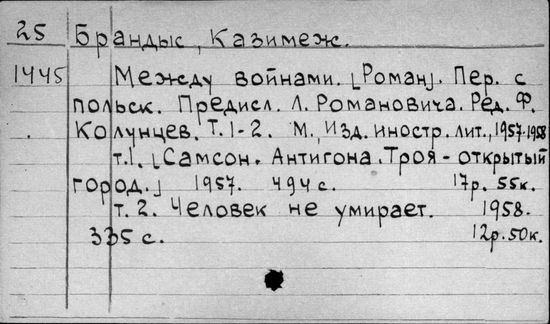 25 Брандыс, Казимеж.
1445 Между войнами. [Роман]. Пер. с
польск. Предисл. Л. Романовича. Ред. Ф.
Колунцев. Т. 1-2. М., Изд. иностр. лит., 1957-1958
т. 1. [Самсон. Антигона. Троя - открытый
город.] 1957. 494 с. 17р. 55к.
т. 2. Человек не умирает. 1958.
335 с. 12р. 50к.